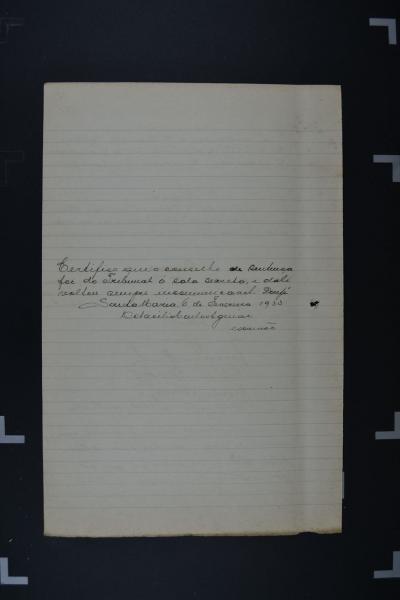 Certifico que o conselho de sentença
foi do Tribunal á sala secreta, e dali
voltou sempre incommunicavel. Dou fé
Santa Maria, 6 de 19
escrivão